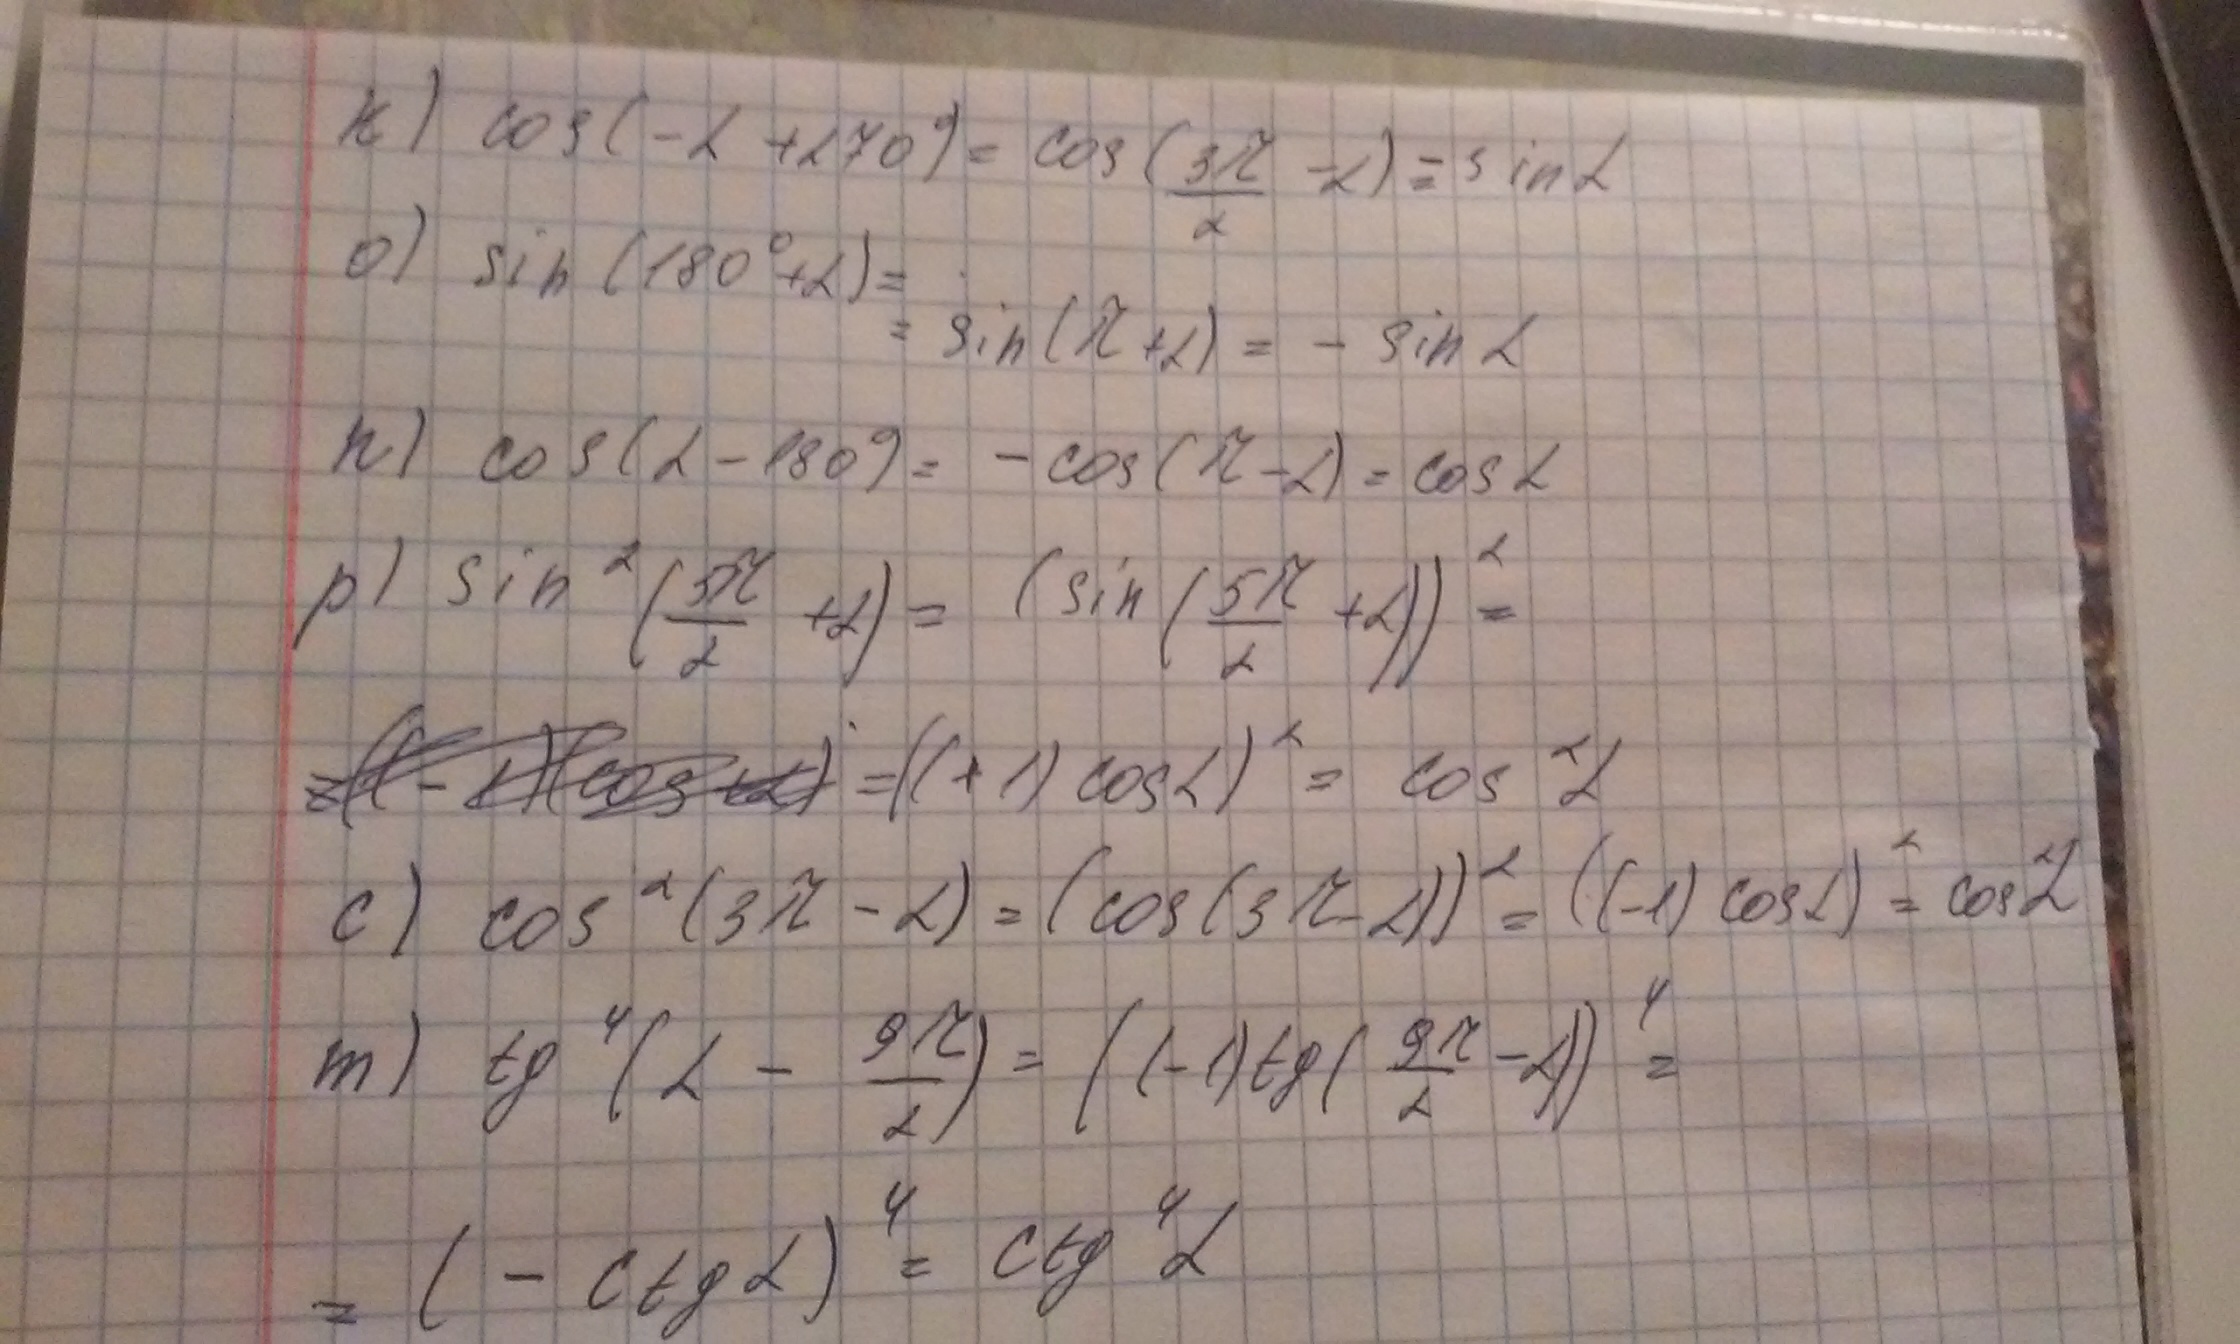 н) cos(-α+270°) = cos(3π/2 -α) = sinα
о) sin(180°+α) =
= sin(π+α) = - sinα
п) cos(α-180°) = -cos(π-α) = cosα
р) sin²(5π/2 +α) = (sin(5π/2 +α))² =
= ((+1) cosα)² = cos²α
с) cos²(3π - α) = (cos(3π-α))² = ((-1) cosα)² = cos²α
т) tg⁴(α - 9π/2) = ((-1)tg(9π/2 -α))⁴ =
= (- ctgα)⁴ = ctg⁴α